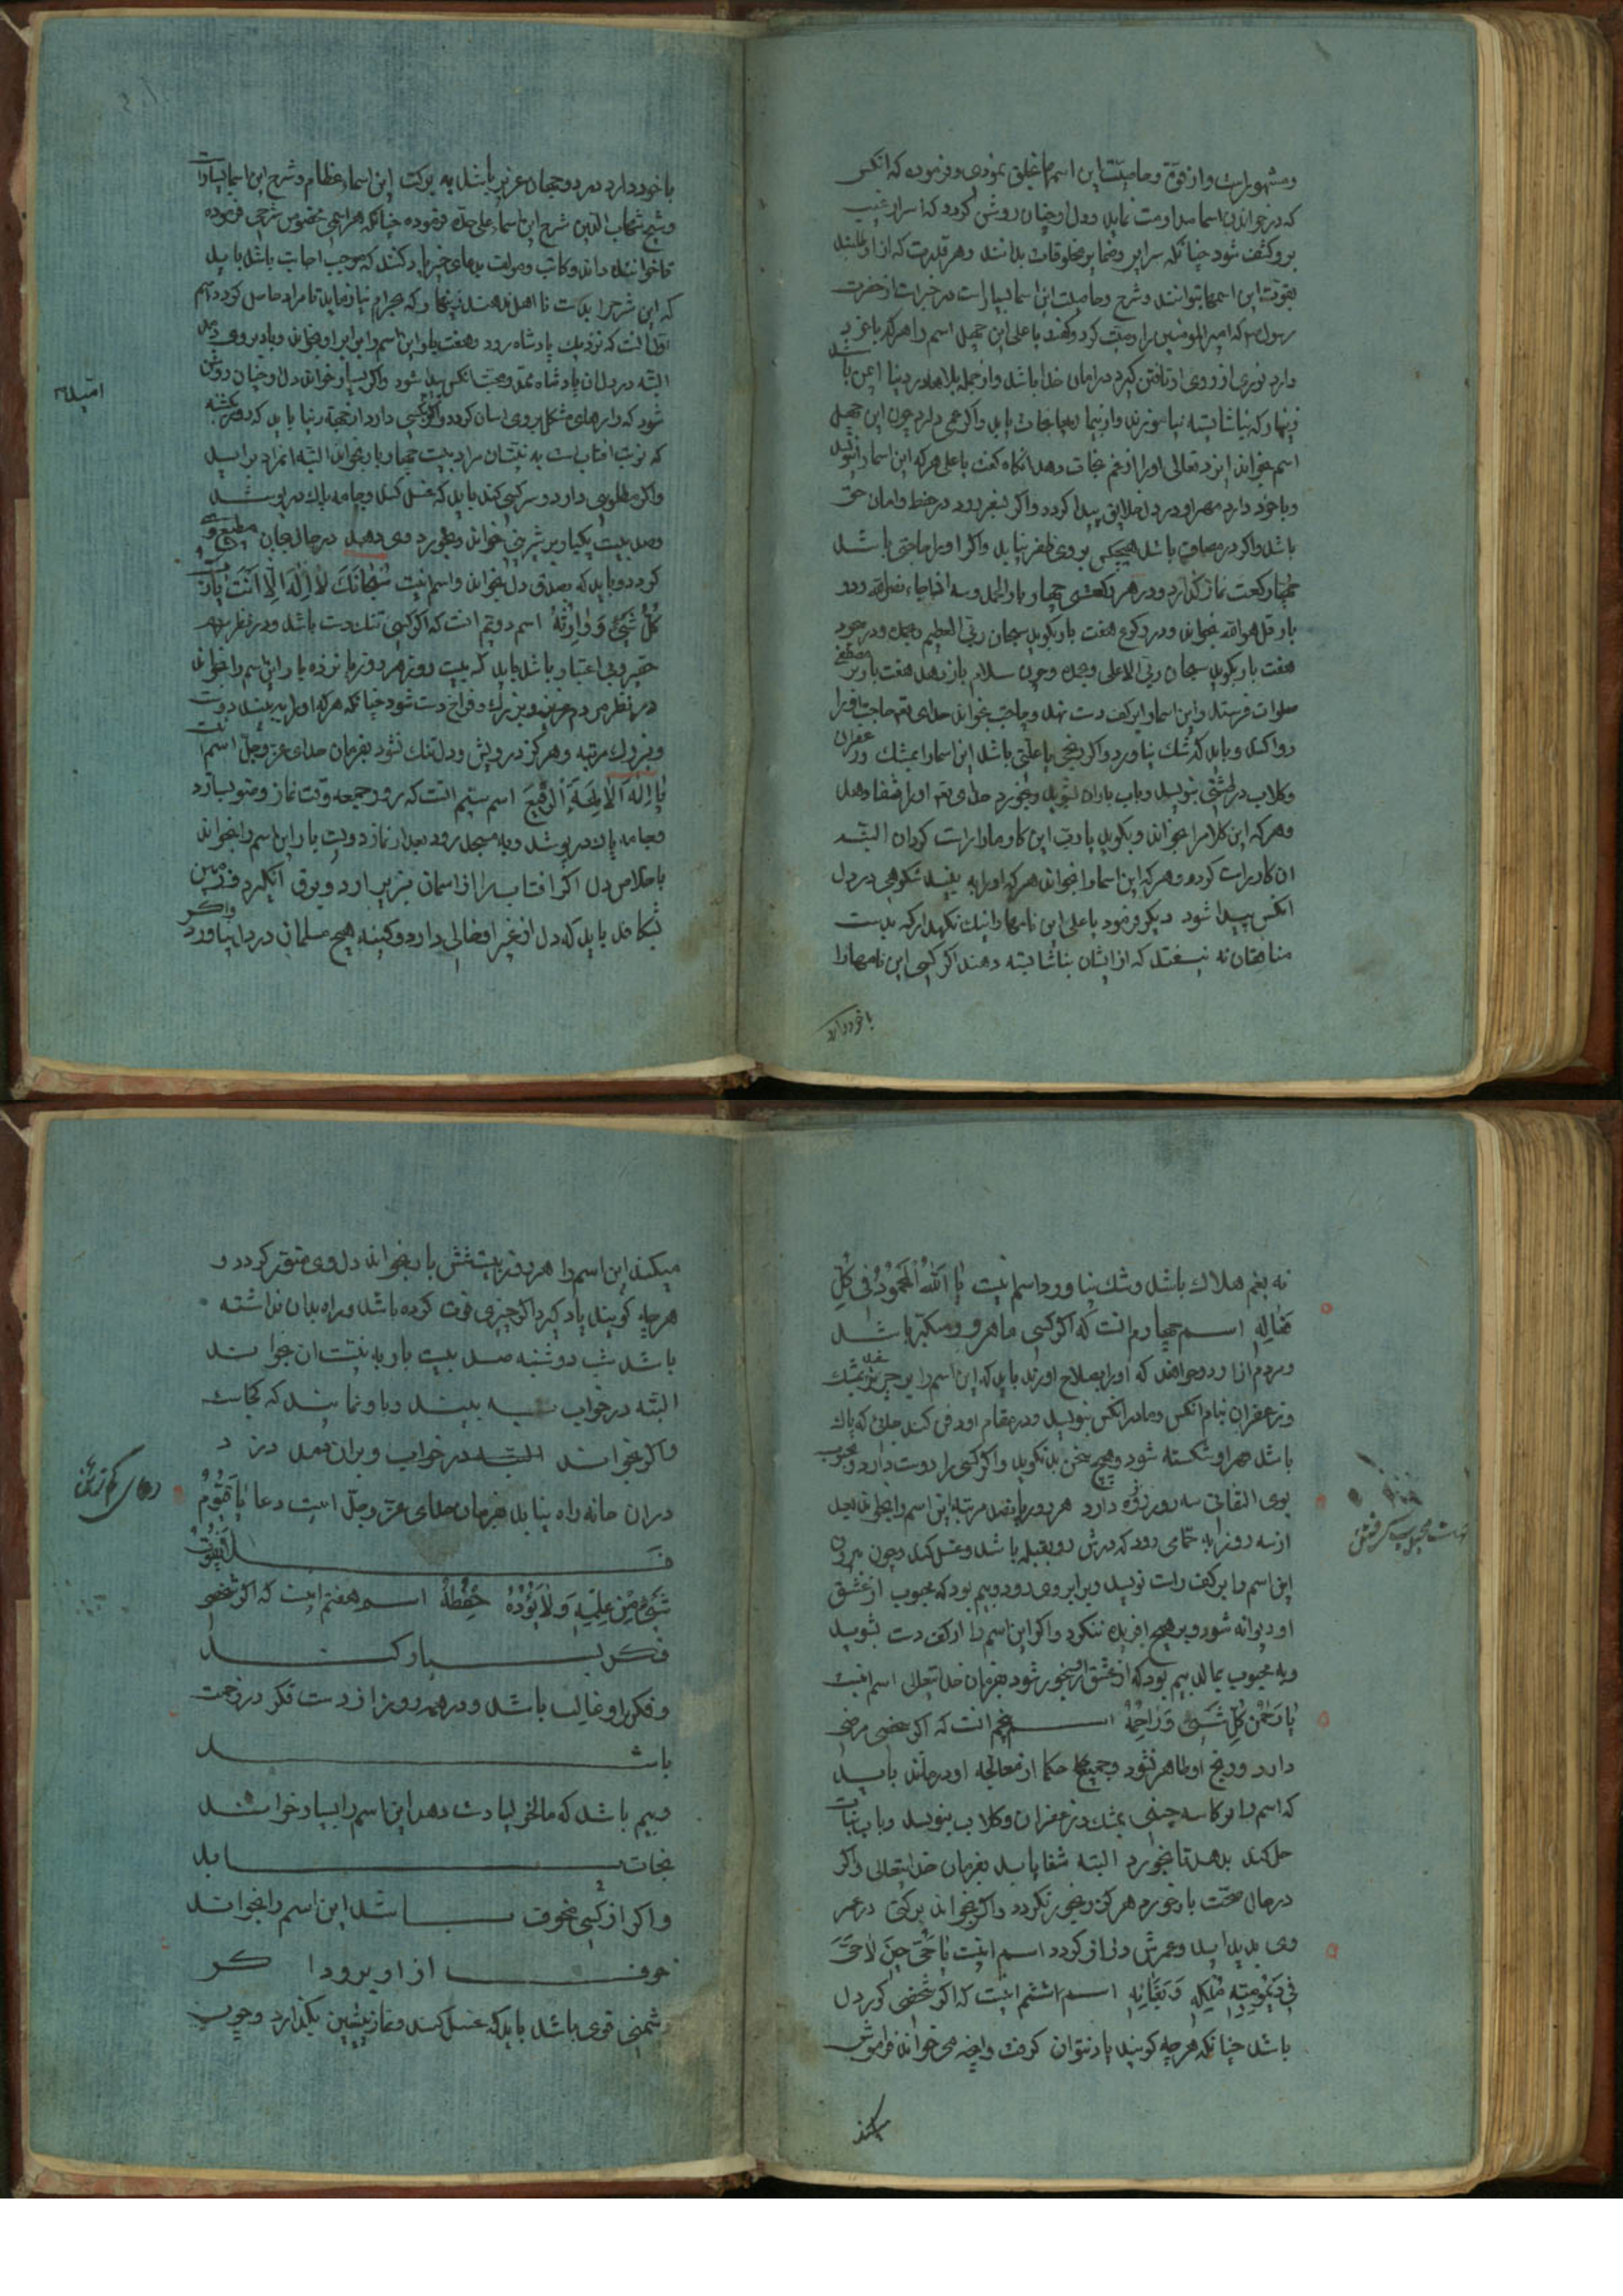 ومشهور است واز قوة وخاصيت اين اسمها خلق نمودى وفرموده كه انكس
كه در خواندن اسما مداومت نمايد ودل او چنان روشن كردد كه اسرار غيب
برو كشف شود چنانكه سراير وضماير مخلوقات بداند وهر قدرت كه از او طلبند
بقوت اين اسمها بتوانند وشرح وخاصيت اين اسما بسيار است در خبر است از حضرت
رسول كه امير المومنين را وصيت كرد وكفت يا على اين چهل اسم را هر كه با خود
دارد نورى از روى او تافتن كيرد در امان خدا باشد واز جمله بلاها در دنيا ايمن باشد
زينهار كه بناشايسته نياموزند واز بيم نجات يابد واكر غمى دارد چون اين چهل
اسم بخواند ايزد تعالى او را از غم نجات دهد انكاه كفت يا على هر كه اين اسما را بنويسد
وباخود دارد مهر او در دل خلايق پيدا كردد واكر بسفر رود در حفظ وامان حق
باشد واكر در مصاف باشد هيچكس بر وى ظفر نيابد واكر او را حاجتى باشد
چهار ركعت نماز كذارد ودر هر ركعتى چهار بار الحمد وسه اذا جاء نصر الله ودو
بار قل هو الله بخواند ودر ركوع هفت بار بكويد سبحان ربى العظيم وبحمده ودر سجود
هفت بار بكويد سبحان ربى الاعلى وبحمده وچون سلام باز دهد هفت بار بر مصطفى
صلوات فرستد واين اسما را بر كف دست نهد وحاجت بخواند خداى تعه حاجت او را
روا كند وبايد كه شك نياورد واكر رنجى يا علتى باشد اين اسما را بمشك وزعفران
وكلاب در طشتى بنويسد وباب باران بشويد وبخورد خداى تعه او را شفا دهد
وهر كه اين كلام را بخواند وبكويد يا رب اين كار ما را راست كردان البته
ان كار راست كردد وهر كه اين اسما را بخواند هر كه او را به بيند شكوهى در دل
انكس پيدا شود ديكر فرمود يا على اين نامها را نيك نكهدار كه بدست
منافقان نه نيفتد كه از ايشان بناشايسته دهند اكر كسى اين نامها را
با خود دارد
با خود دارد در دو جهان عزيز باشد به بركت اين اسماء عظام وشرح اين اسما بسيار است
وشيخ شهاب الدين شرح اين اسماء على حده فرموده چنانكه هر اسمى مخصوص شرحى فرموده
تا خواننده داند وكاتب ومولف بدعاى خير ياد كنند كه موجب اجابت باشد بايد
كه اين شرح را بدست نا اهل ندهند زينهار كه بحرام نيازمايد تا مراد حاصل كردد اسم
اول انست كه نزديك پادشاه رود وهفت بار اين اسم را برابر او بخواند وباد بر وى دمد
البته در دل ان پادشاه محبت انكس پيدا شود واكر بسيار خواند دل او چنان روشن
شود كه كارهاى مشكل بر وى اسان كردد واكر كسى دارد از جهة دنيا بايد كه روز يكشنبه
كه نوبت افتاب است به نيت ان مراد بيست چهار بار بخواند البته ان مراد برايد
واكر مطلوبى دارد وسركشى كند بايد كه غسل كند وجامه پاك در پوشد
وصد بيست يكبار بر شيرينى خواند وبخورد وى دهد در حال محبان مطيع وى
كردد وبايد كه بصدق دل بخواند واسم اينست سُبْحَانَكَ لَا اِلٰهَ اِلَّا اَنْتَ يَارَبَّ
كُلِّ شَيْءٍ وَوَارِثَهُ اسم دوم انست كه اكر كسى تنك دست باشد ودر نظر مردم
حقير وبى اعتبار باشد بايد كه بيست روز هر روز پانزده بار اين اسم را بخواند
در نظر مردم عزيز وبزرك وفراخ دست شود چنانكه هر كه او را به بيند دوست
وبزرك مرتبه وهركز درويش ودلتنك نشود بفرمان خداى عز وجل اسم اينست
يَا اِلٰهَ اَلْاٰلِهَةِ اَلرَّفِيعَ اسم سيم انست كه روز جمعه وقت نماز وضو بسازد
وجامه پاك در پوشد وبه مسجد رود بعد از نماز دويست بار اين اسم را بخواند
باخلاص دل اكر افتاب را از اسمان بزير ارد وبرق انكيزد در زمين
بايد كه دل از غير او خالى دارد وكينه هيچ مسلمانى در دل نياورد واكر
نه بغم هلاك باشد وشك نياورد اسم اينست يَا اَللّٰهُ اَلْمَحْمُودُ فِى كُلِّ
فِعَالِهِ اسم چهارم انست كه اكر كسى ماهر ومتكبر باشد
ومردم ازار ودوا كه او را بصلاح اورند بايد كه اين اسم را بر بمشك
وزعفران بنام انكس ومادر انكس بنويسد ودر مقام او دفن كند جائى كه پاك
باشد شكسته شود وهيچ سخن بد نكويد واكر كسى را دوست دارد ومحبوب
بوى التفات سه روز روزه دارد هر روز پانصد مرتبه اين اسم را بخواند بعد
از سه روز به حمامى رود كه درش رو بقبله باشد وغسل كند وچون بيرون
اين اسم را بر كف راست نويسد وبرابر وى رود وبيم بود كه محبوب از عشق
او ديوانه شود وبر هيچ افريده ننكرد واكر اين اسم را از كف دست بشويد
وبه محبوب بمالد بيم بود كه از عشق او رنجور شود بفرمان خدايتعالى اسم اينست
يَا رَحْمٰنَ كُلِّ شَيْءٍ وَرَاحِمَهُ اسم پنجم انست كه اكر شخصى مرضى
دارد ورنج او ظاهر نشود وجميع حكما از معالجه او درمانند بايد
كه اسم را بر كاسه چينى بمشك وزعفران وكلاب بنويسد وباب نبات
حل كند بدهد تا بخورد البته شفا يابد بفرمان خدايتعالى واكر
در حال صحت باز خورد هركز رنجور نكردد واكر بخواند بركتى در عمر
وى پديد ايد وعمرش دراز كردد اسم اينست يَا حَيُّ حِينَ لَا حَيَّ
فِى دَيْمُومَةِ مُلْكِهِ وَبَقَائِهِ اسم ششم اينست كه اكر شخصى كور دل
باشد چنانكه هر چه كويند ياد نتوان كرفت وانچه مى خواند فراموش
ميكند
ميكند اين اسم را هر روز بيست شش بار بخواند دل وى منور كردد و
هر چه كويند ياد كيرد اكر چيزى فوت كرده باشد وراه بدان نداشته
باشد شب دوشنبه صد بيست بار به نيت ان خواند
البته در خواب به بيند وباو نمايند كه كجاست
واكر بخواند البته در خواب ويران نمد دزد
در ان خانه راه نيابد بفرمان خداى عز وجل اينست دعا يَا قَيُّومُ
فَلَا يَفُوتُ
شَيْءٌ مِنْ عِلْمِهِ وَلَا يَؤُدُهُ حِفْظُهُ اسم هفتم اينست كه اكر شخصى
فكر بسيار كند
وفكر او غالب باشد ودر همه روز از دست فكر در زحمت
باشد
وبيم باشد كه ماليخوليا دست دهد اين اسم را بسيار خواند
نجات يابد
واكر از كسى مخوف باشد اين اسم را بخواند
خوف از او برود اكر
دشمنى قوى باشد بايد كه غسل كند ونماز پيشين بكذارد وچون